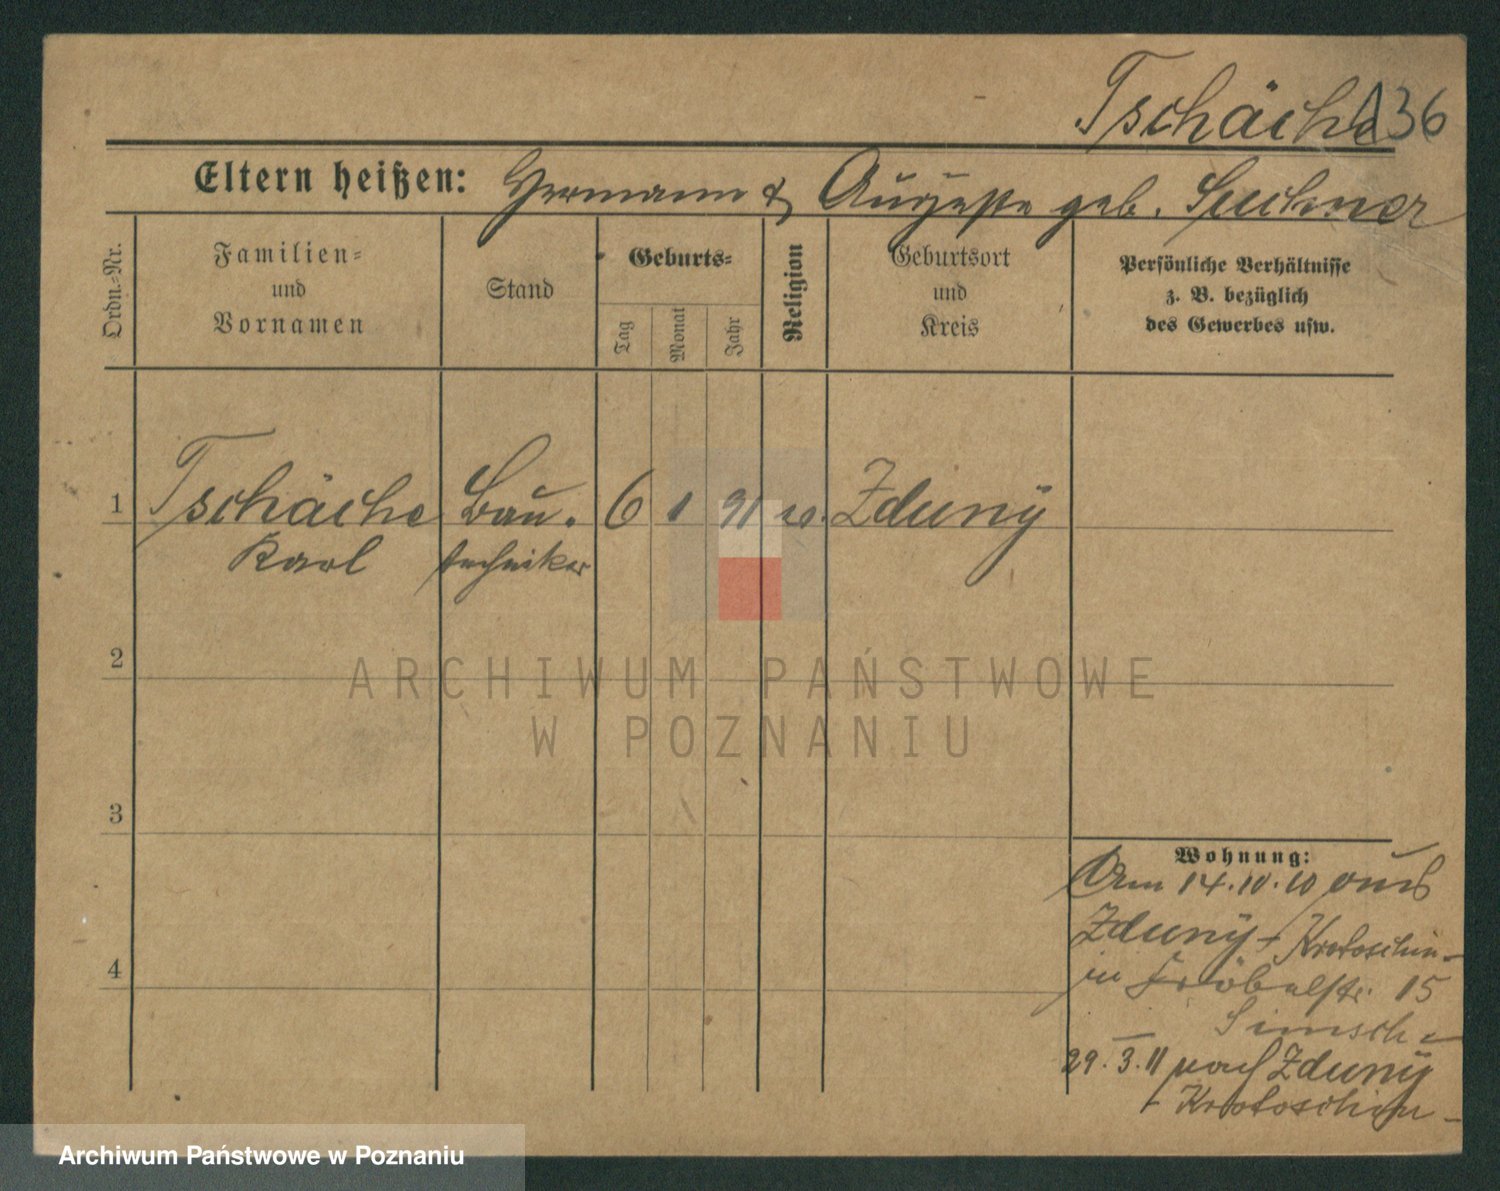 Tschäche 136
Eltern heißen: Hermann & Auguste geb.
Ordn.-Nr.
Familien-
und
Vornamen
Stand
Geburts-
Tag
Monat
Jahr
Religion
Geburtsort
und
Kreis
Persönliche Verhältnisse
z. B. bezüglich
des Gewerbes usw.
1 Tschäche Bau. 6 1 91 Zduny
Karl techniker
2
ARCHIWUM PAŃSTWOWE
W POZNANIU
3
Wohnung:
Am 14.10.10 aus
Zduny - Krotoschin -
in Fröbelstr. 15
4
Simsch -
29.3.11 nach Zduny
- Krotoschin -
Archiwum Państwowe w Poznaniu